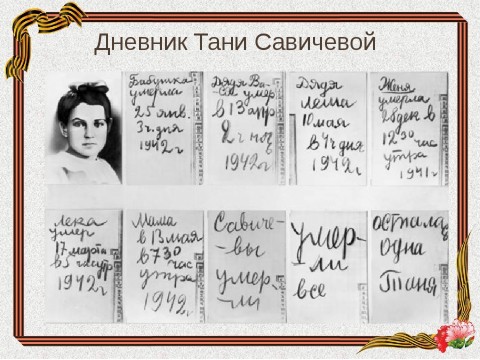 Дневник Тани Савичевой
Бабушка
умерла
25 янв.
3 ч. дня
1942 г
Дядя Ва-
ся умер
в 13 апр
2 ч ноч
1942 г
Дядя
Леша
10 мая
в 4 ч дня
1942 г
Женя
умерла
28 дек в
12 30 час
утра
1941 г
Лека
умер
17 марта
в 5 час утр
1942 г
Мама
в 13 мая
в 7 30
час
утра
1942 г
Савиче-
-вы
умер-
-ли
умер-
-ли
все
осталась
одна
Таня